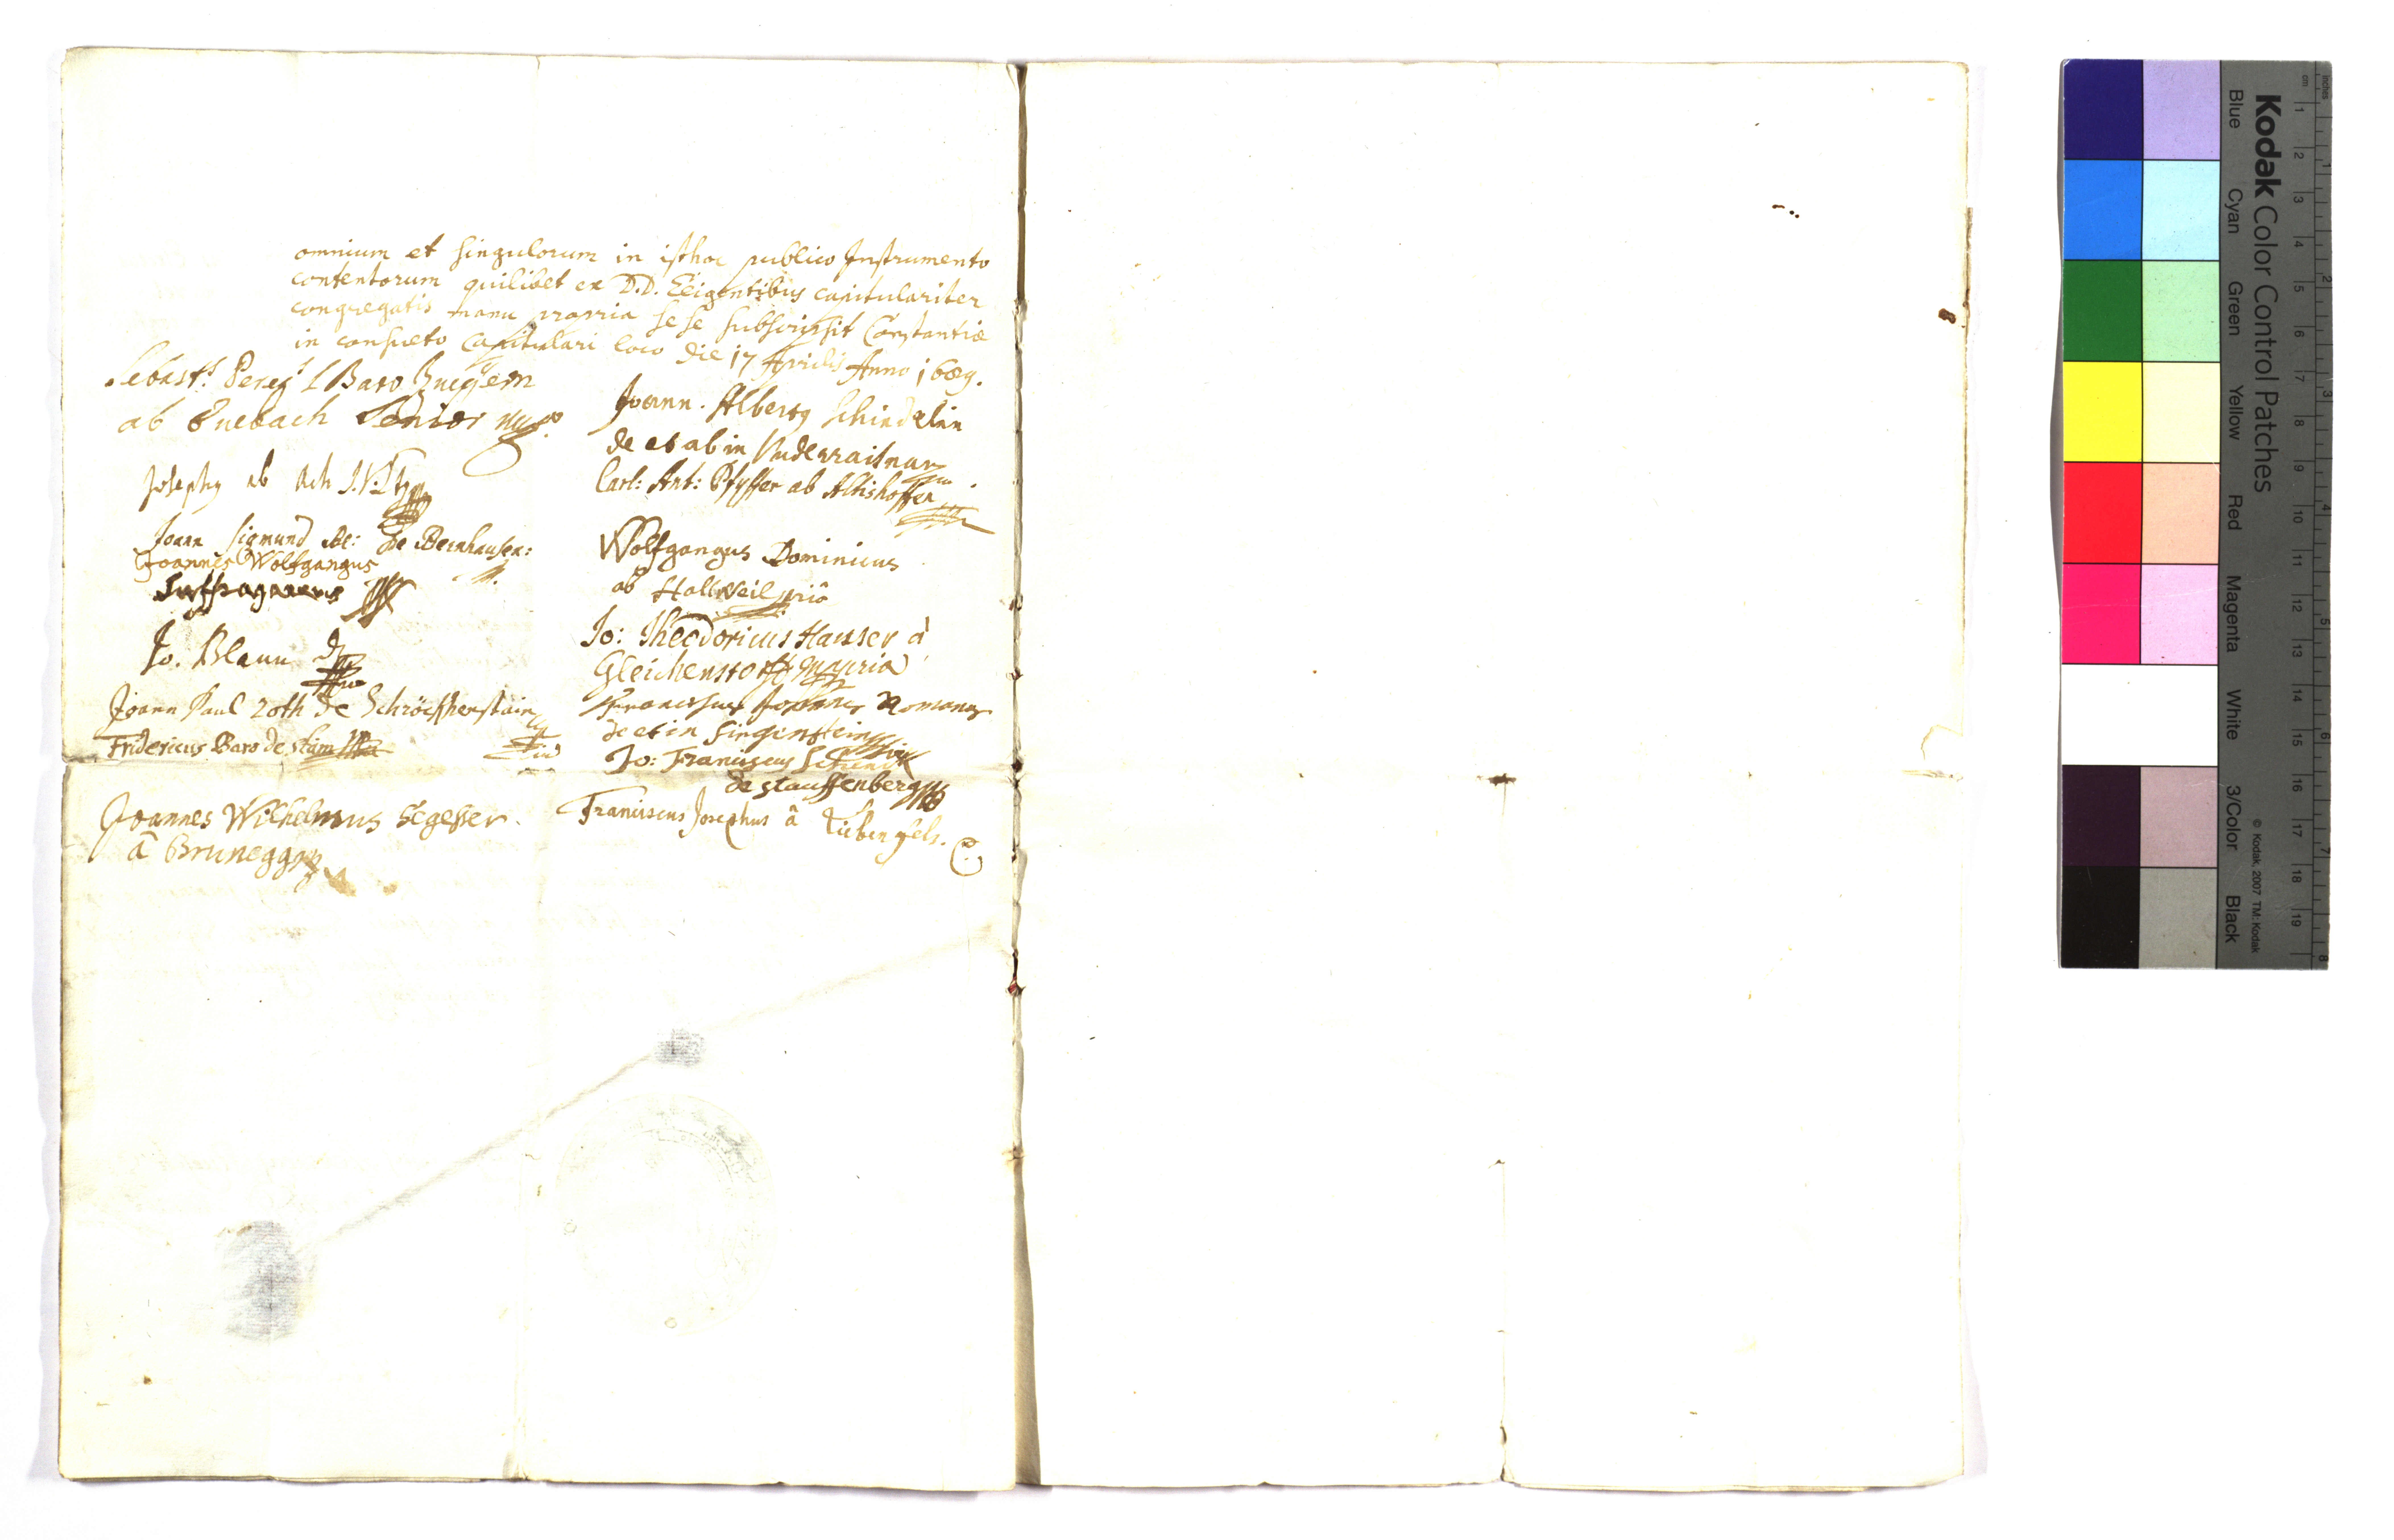 omnium et singulorum in isthoc publico Instrumento
contentorum quilibet ex D.D. Eligentibus capitulariter
congregatis manu propria sese subscripsit Constantiæ
in consueto Capitulari loco die 17 Aprilis Anno 1689.
Baro
ab Senior
Josephus ab Ach J.V.D.
Joann Sigmund de Bernhausen:
Joannes Wolfgangus
Suffraganeus
Jo. Blauu D
Joann Paul Roth de Schröckhenstain
Fridericus Baro de stain
Joannes Wilhelmus Segesser.
â Brunegg
Joann. Albertus Schindelin
de et ab in Underraitnau
Carl: Ant: Pfyffer ab Altishoffen
Wolfgangus Dominicus
ab Hallweil
Jo: Theodoricus Hausser à
Gleichenstorff mppria
Franciscus Joannes Romanus
de et in Singenstein
Jo: Franciscus Schenk
de stauffenberg
Franciscus Josephus â Liebenfels.
Kodak Color Control Patches
Blue Cyan Green Yellow Red Magenta White 3/Color Black
© Kodak, 2007 TM: Kodak
inches 1 2 3 4 5 6 7 8
cm 1 2 3 4 5 6 7 8 9 10 11 12 13 14 15 16 17 18 19